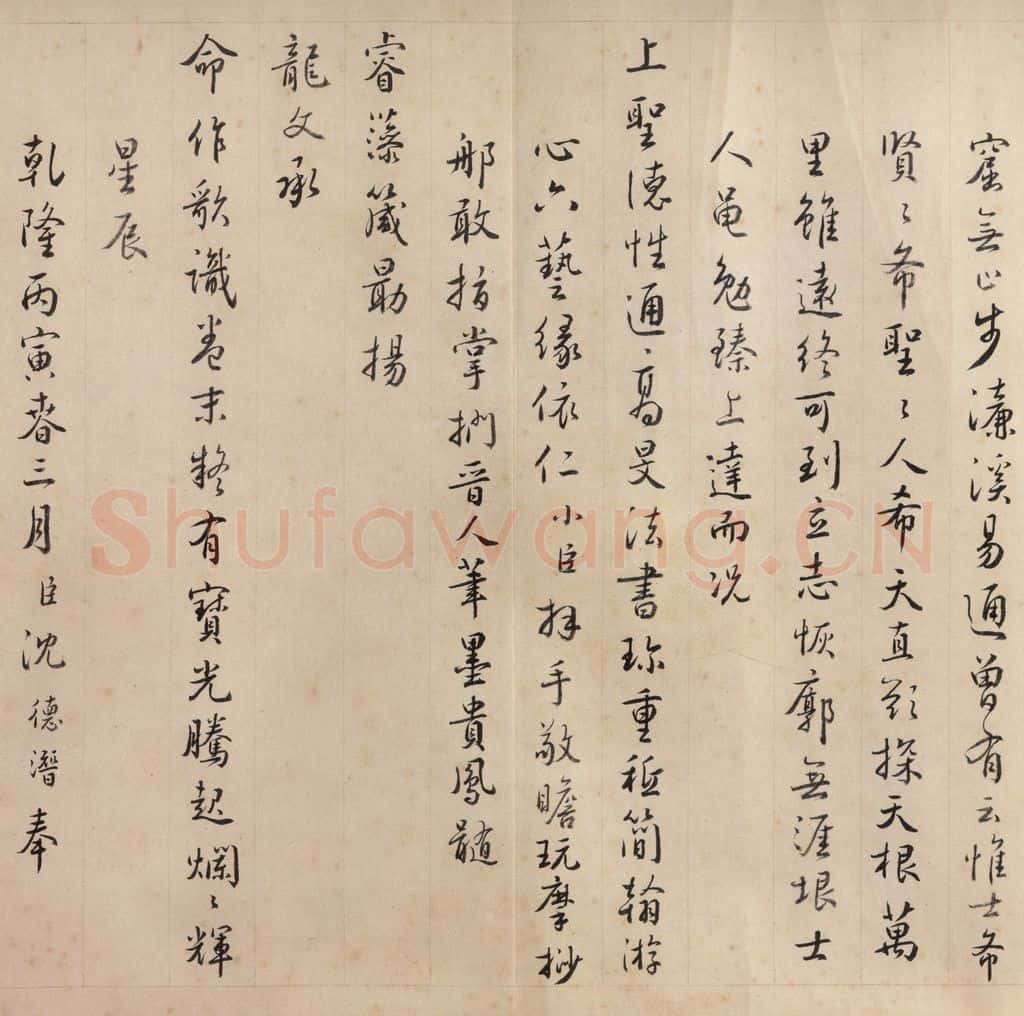 窟無止步濂溪易通曾有云惟士希
賢〻希聖〻人希天直欲探天根萬
里雖遠終可到立志恢廓無涯垠士
人黽勉臻上達而況
上聖德性通〻高旻法書珍重秘簡翰游
心六藝緣依仁小臣拜手敬瞻玩摩挱
那敢指掌捫晉人筆墨貴鳳髓
睿藻箴勗揚
龍文承
命作歌識卷末終有寶光騰起爛〻輝
星辰
乾隆丙寅春三月臣沈德潛奉
Shufawang.CN